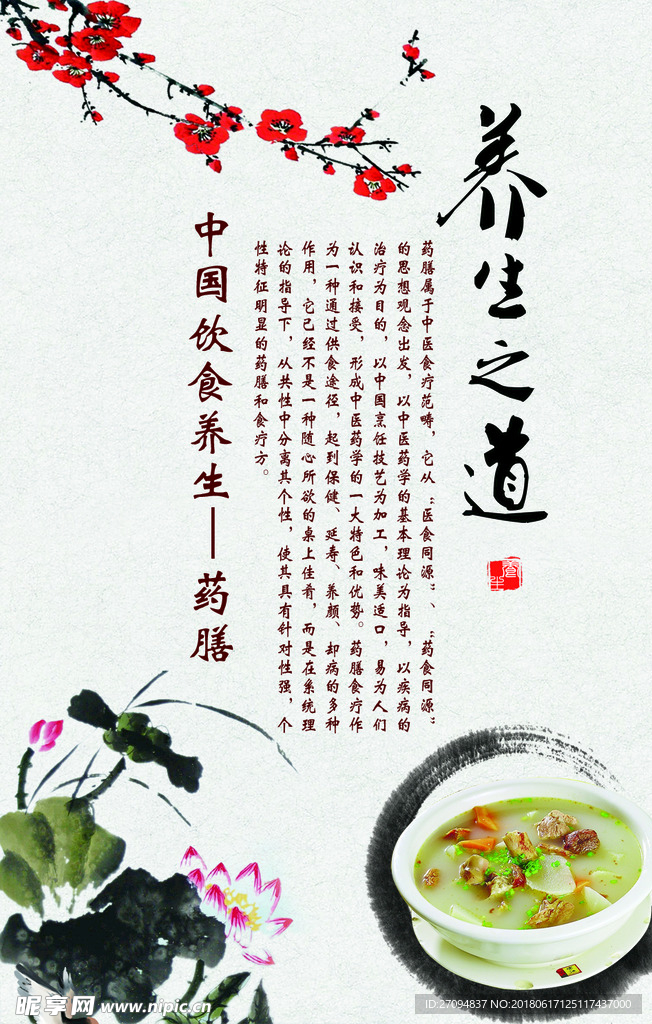 养生之道
养生
药膳属于中医食疗范畴，它从“医食同源”、“药食同源”
的思想观念出发，以中医药学的基本理论为指导，以疾病的
治疗为目的，以中国烹饪技艺为加工，味美适口，易为人们
认识和接受，形成中医药学的一大特色和优势。药膳食疗作
为一种通过供食途径，起到保健、延寿、养颜、却病的多种
作用，它已经不是一种随心所欲的桌上佳肴，而是在系统理
论的指导下，从共性中分离其个性，使其具有针对性强，个
性特征明显的药膳和食疗方。
中国饮食养生—药膳
昵享网 www.nipic.cn
ID:27094837 NO:20180617125117437000